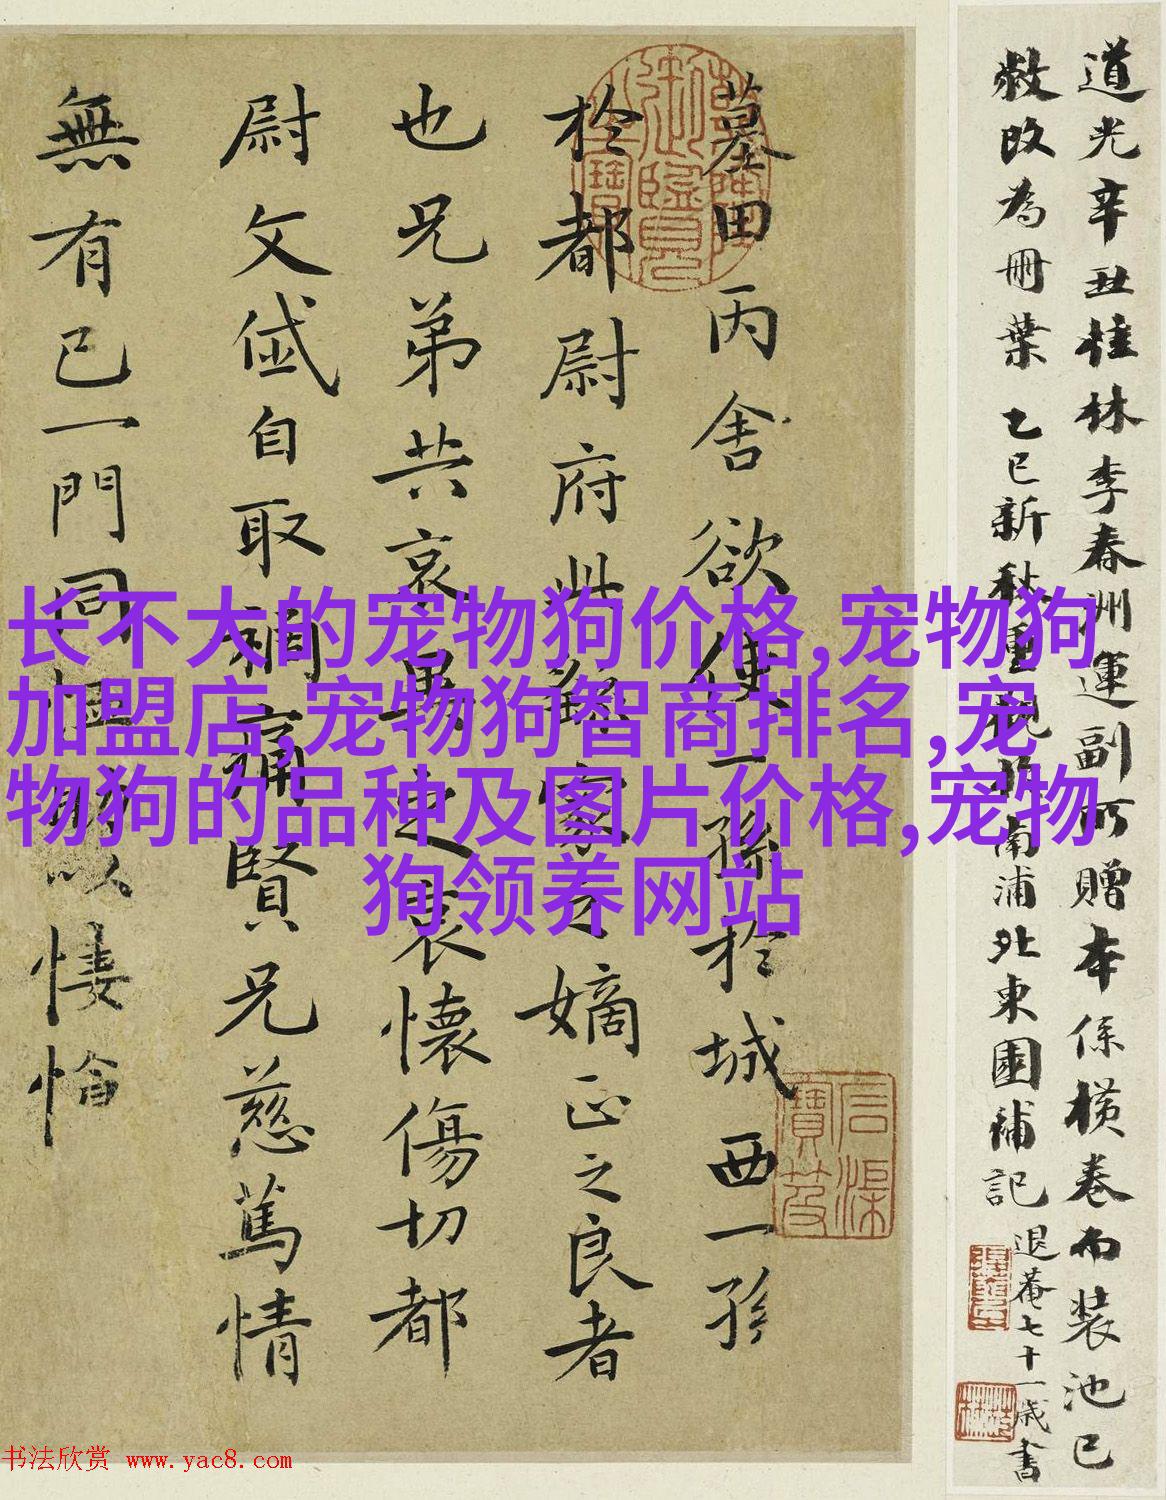 道光辛丑桂林李春洲運副所贈本係橫卷而裝池已
敝改為冊葉 乙巳新秋重觀於南浦北東園補記
退菴七十一歲書
墓田丙舍欲使一孫於城西一孫
於都尉府此繇家之嫡正之良者
也兄弟共哀異之哀懷傷切都
尉文岱自取禍痛賢兄慈篤情
無有已一門同恤助以悽愴
长不大的宠物狗价格,宠物狗
加盟店,宠物狗智商排名,宠
物狗的品种及图片价格,宠物
狗领养网站
书法欣赏 www.yac8.com